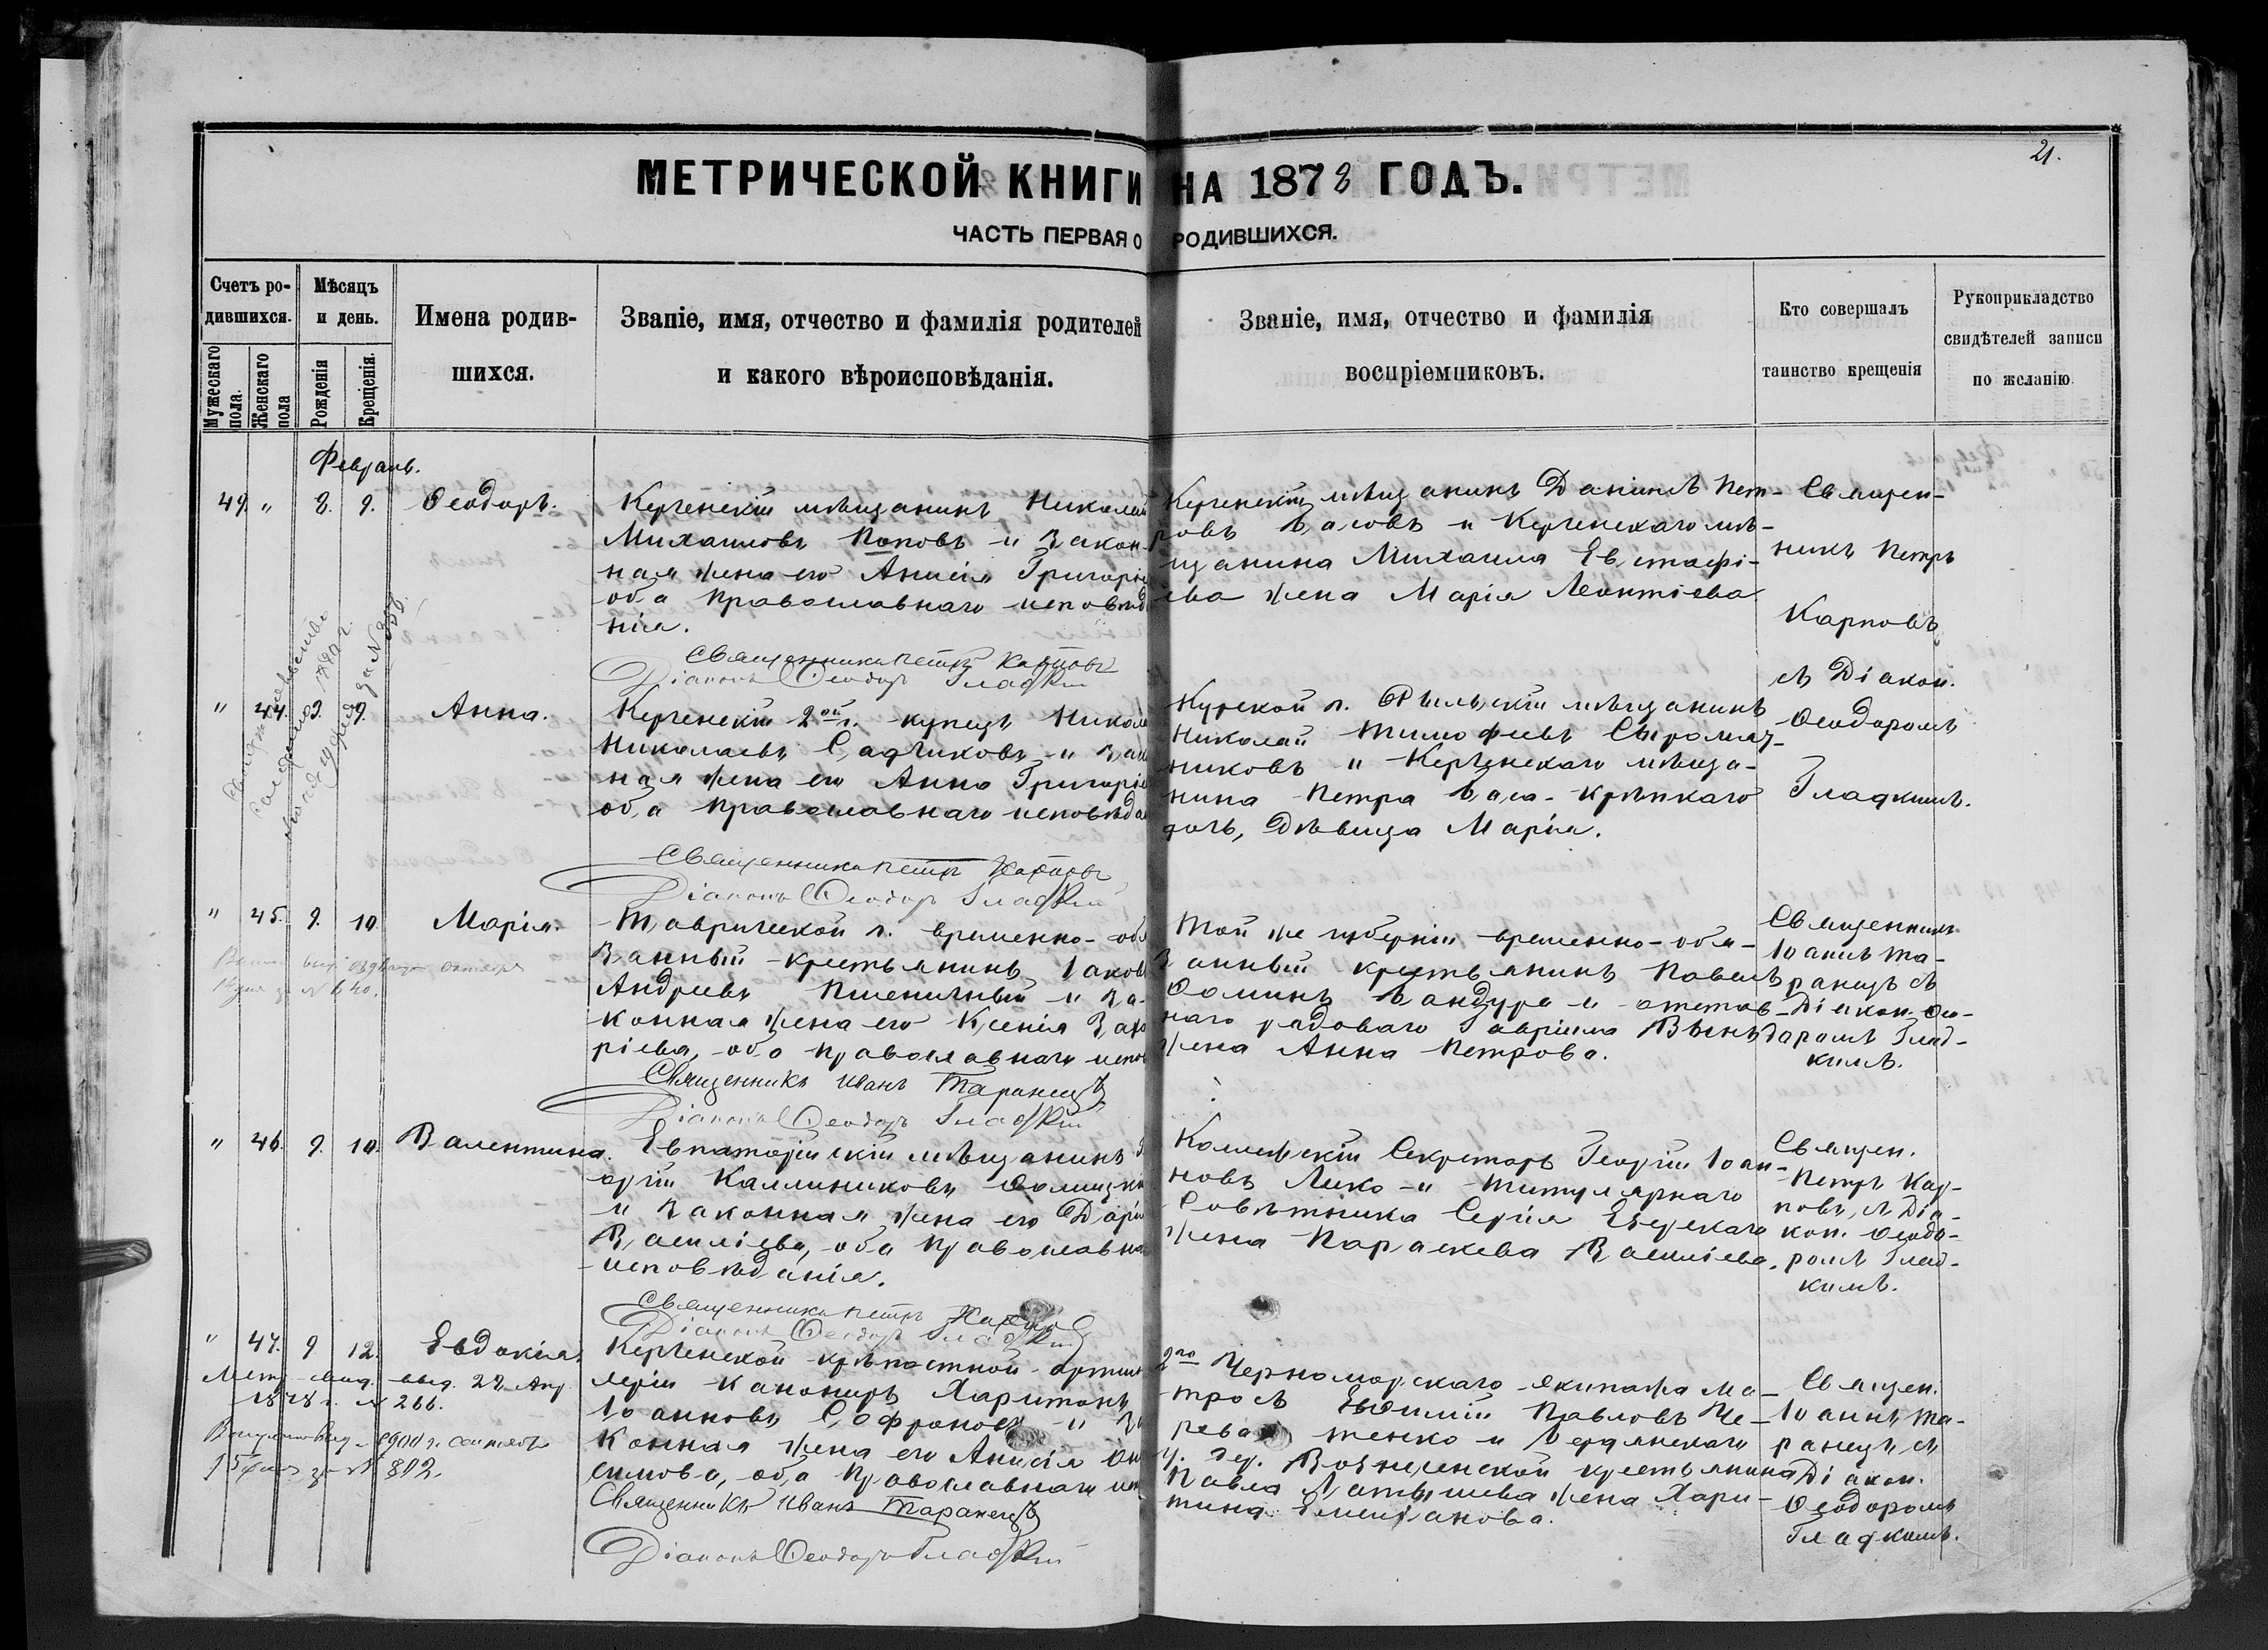 21.
МЕТРИЧЕСКОЙ КНИГИ НА 1878 ГОДЪ.
ЧАСТЬ ПЕРВАЯ О РОДИВШИХСЯ.
Счетъ ро-
дившихся.
Мужескаго пола.
Женскаго пола
Мѣсяцъ
и день.
Рожденія
Крещенія.
Имена родив-
шихся.
Званіе, имя, отчество и фамилія родителей
и какого вѣроисповѣданія.
Званіе, имя, отчество и фамилія
воспріемниковъ.
Кто совершалъ
таинство крещенія
Рукоприкладство
свидѣтелей записи
по желанію
Февраль.
49. " 8. 9. Ѳеодоръ.
Керченскій мѣщанинъ Николай
Михаиловъ Поповъ и закон-
ная жена его Анисія Григоріе
оба православнаго исповѣд
нія.
Священникъ Петръ Карповъ
Діаконъ Ѳеодоръ Гладкій
Керченскій мѣщанинъ Даніилъ Пет-
ровъ Басовъ и Керченскаго мѣ-
щанина Михаила Евстафі-
ева жена Марія Леонтіева
Священ-
никъ Петръ
Карповъ
съ Діакон.
Ѳеодоромъ
Гладкимъ.
" 44. 9. 9. Анна.
Керченскій 2ой г. купецъ Никола
Николаевъ Садчиковъ и зак
ная жена его Анна Григоріе
оба православнаго исповѣда
Священникъ Петръ Карповъ
Діаконъ Ѳеодоръ Гладкій
Курской г. Рыльскій мѣщанинъ
Николай Тимофеевъ Сыромят-
никовъ и Керченскаго мѣща-
нина Петра Бала-Крѣпкаго
дочь, дѣвица Марія.
" 45. 9. 10. Марія.
Таврической г. временно-обя
занный крестьянинъ Іаковъ
Андреевъ Пшеничный и за-
конная жена его Ксенія Заха
ріева, оба православнаго испов
Священникъ Иванъ Таранецъ
Діаконъ Ѳеодоръ Гладкій
Той же губерніи временно-обя-
занный крестьянинъ Павелъ
Ѳоминъ Бандура и отстав-
наго рядоваго Гавріила
жена Анна Петрова.
Священникъ
Іоаннъ Та-
ранецъ съ
Діакон. Ѳео-
доромъ Глад-
кимъ.
" 46. 9. 10. Валентина.
Евпаторійскій мѣщанинъ Г
оргій Каллиниковъ
и законная жена его Дарія
Василіева, оба православна
исповѣданія.
Священникъ Петръ Карповъ
Діаконъ Ѳеодоръ Гладкій
Коллежскій Секретарь Георгій Іоан-
новъ Лико и титулярнаго
Совѣтника Сергія
жена Параскева Василіева.
Священ.
Петръ Кар-
повъ, съ Діа-
кон. Ѳеодо-
ромъ Глад-
кимъ.
" 47. 9 12. Евдокія.
Метр. выд. 22 Апр
1878 г. № 266.
№ 812.
Керченской крѣпостной артил
леріи канониръ Харитонъ
Іоанновъ Софроновъ и за
конная жена его Анисія Они
симова, оба православнаго исп
Священникъ Иванъ Таранецъ
Діаконъ Ѳеодоръ Гладкій
2го Черноморскаго экипажа Ма-
тросъ Евѳимій Павловъ Че-
ревατενко и Бердянскаго
у. дер. Вознесенской крестьянина
Павла Латышева жена Хари-
тина Емиліанова.
Священ.
Іоаннъ Та-
ранецъ, съ
Діакон.
Ѳеодоромъ
Гладкимъ.